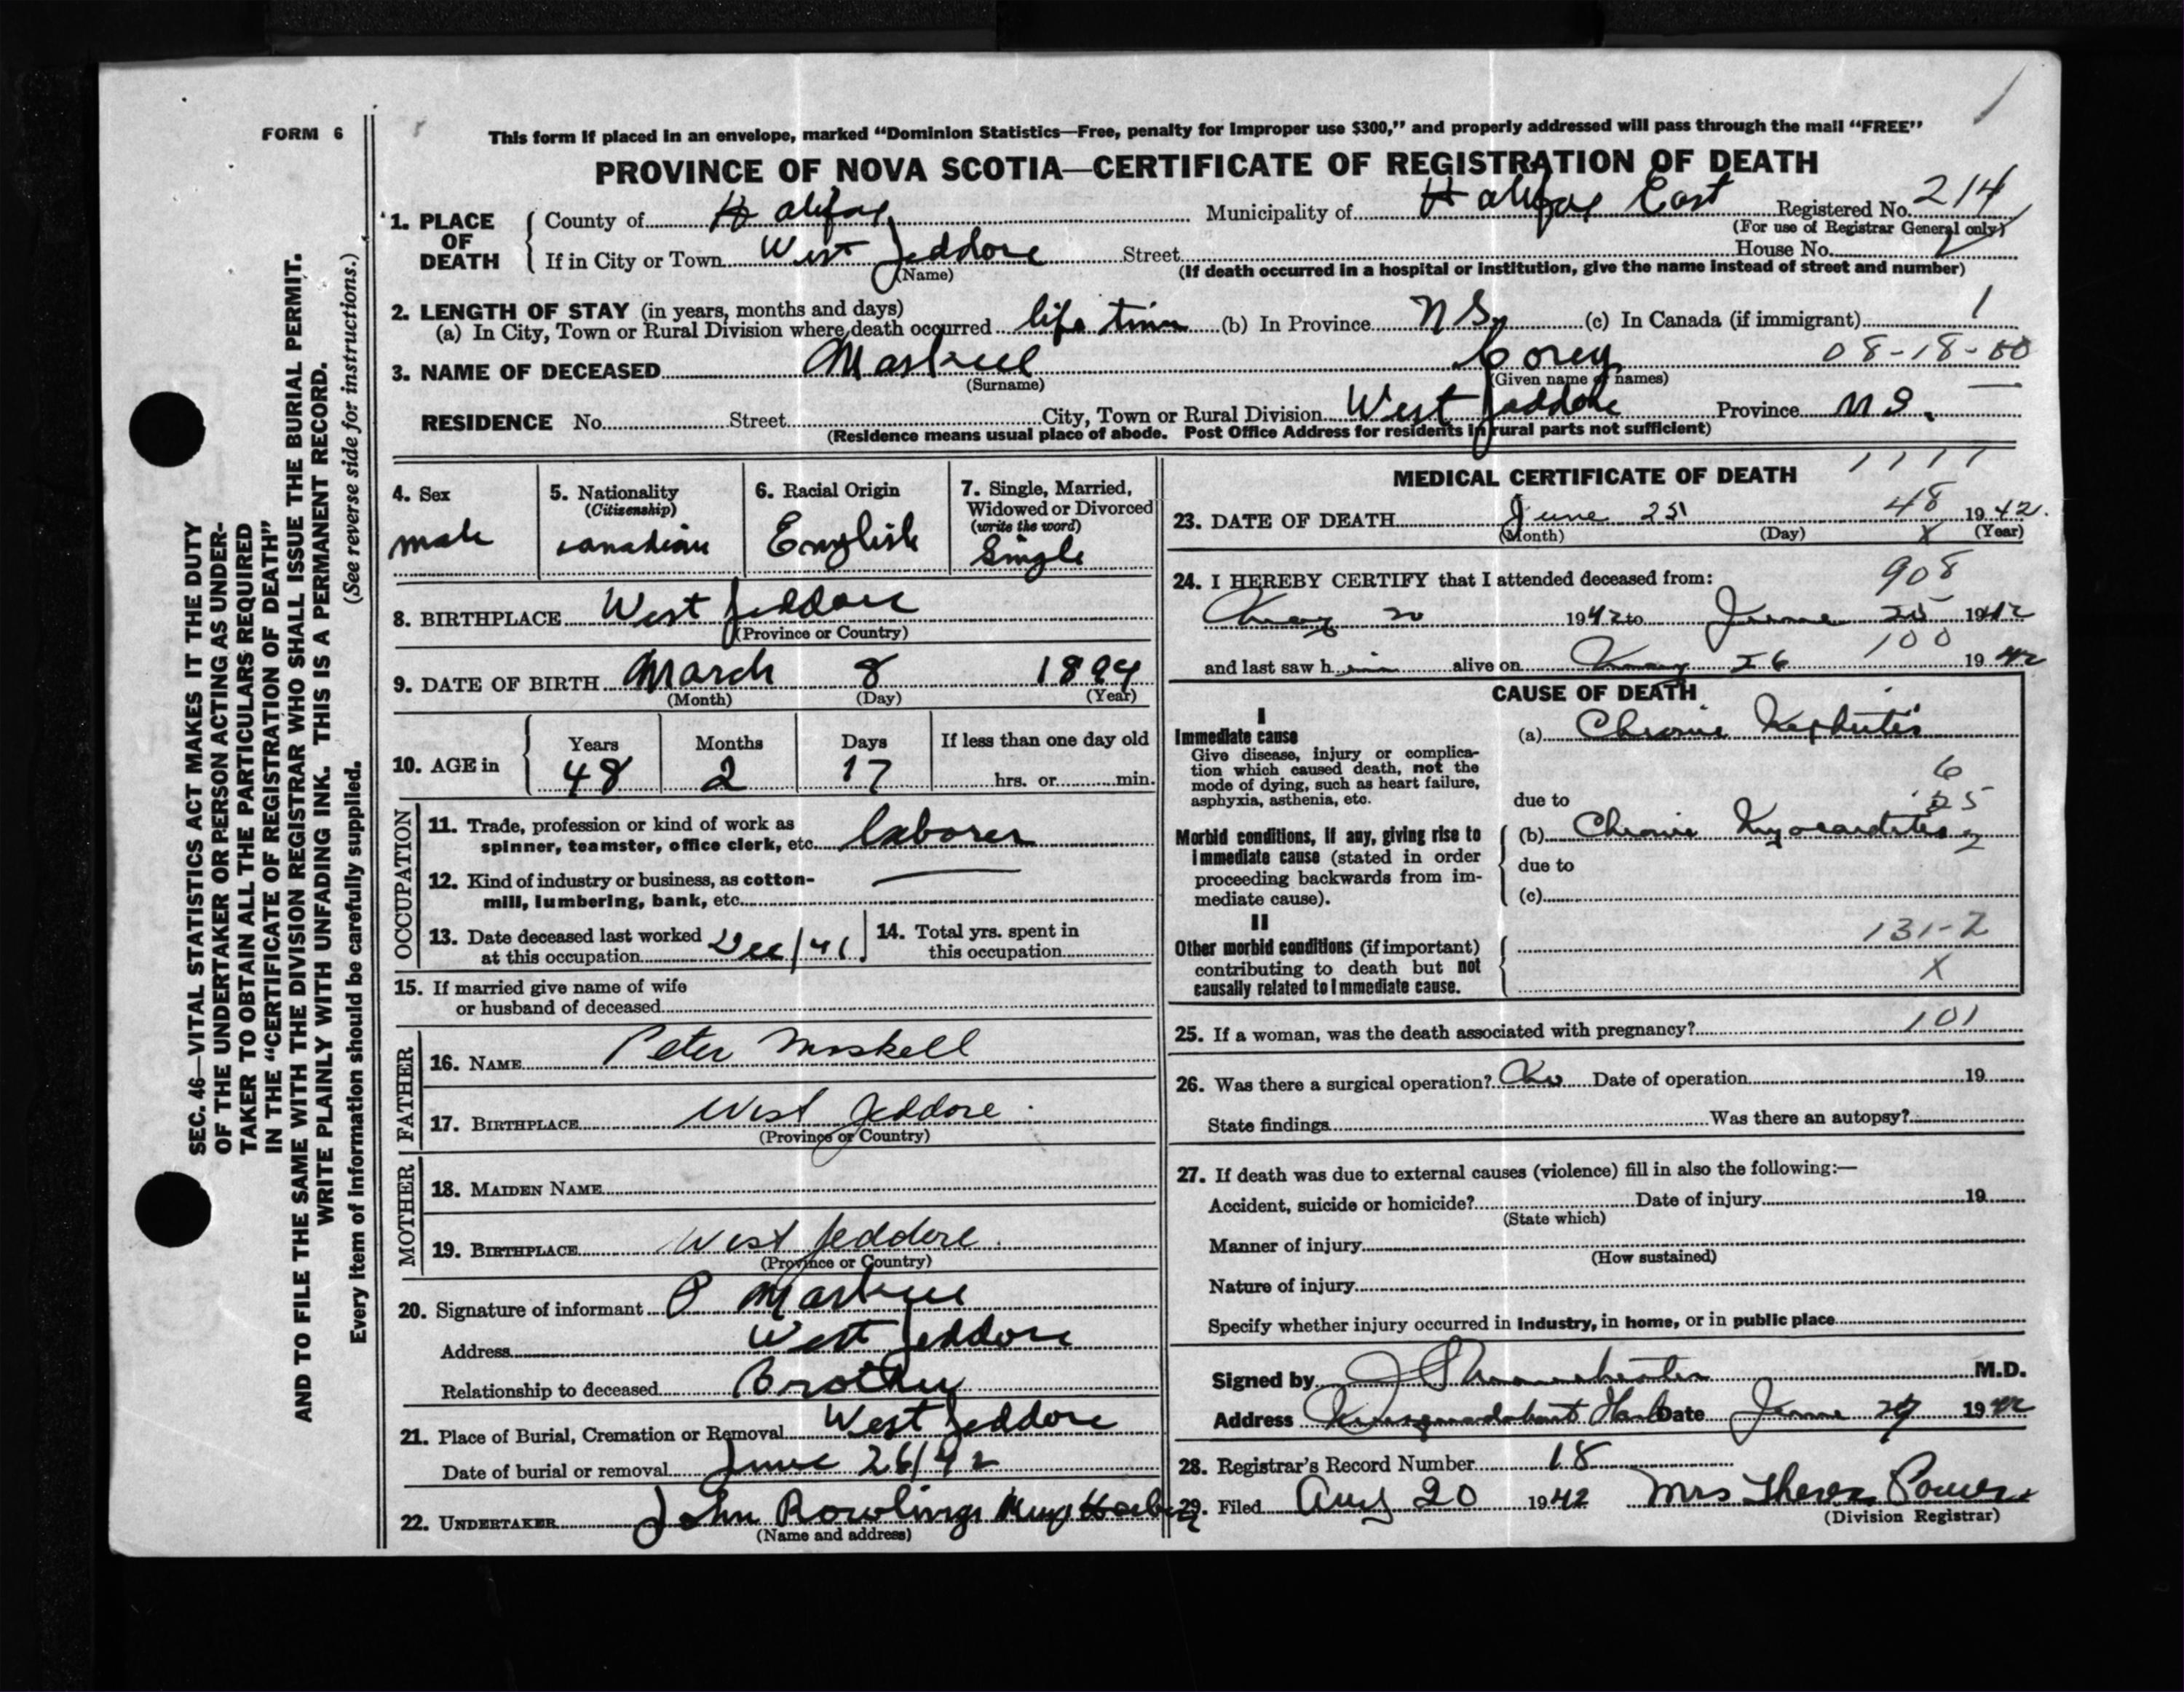 FORM 6
This form if placed in an envelope, marked “Dominion Statistics—Free, penalty for improper use $300,” and properly addressed will pass through the mail “FREE”
PROVINCE OF NOVA SCOTIA—CERTIFICATE OF REGISTRATION OF DEATH
1. PLACE OF DEATH
County of Halifax Municipality of Halifax East Registered No. 214
(For use of Registrar General only)
If in City or Town West Jeddore Street House No.
(Name) (If death occurred in a hospital or institution, give the name instead of street and number)
2. LENGTH OF STAY (in years, months and days)
(a) In City, Town or Rural Division where death occurred life time (b) In Province N S. (c) In Canada (if immigrant) 1
3. NAME OF DECEASED Maskell Corey 08-18-00
(Surname) (Given name or names)
RESIDENCE No. Street City, Town or Rural Division West Jeddore Province N S.
(Residence means usual place of abode. Post Office Address for residents in rural parts not sufficient)
4. Sex
male
5. Nationality
(Citizenship)
canadian
6. Racial Origin
English
7. Single, Married, Widowed or Divorced
(write the word)
Single
8. BIRTHPLACE West Jeddore
(Province or Country)
9. DATE OF BIRTH March 8 1894
(Month) (Day) (Year)
10. AGE in
Years Months Days If less than one day old
48 2 17 hrs. or min.
OCCUPATION
11. Trade, profession or kind of work as
spinner, teamster, office clerk, etc. laborer
12. Kind of industry or business, as cotton-
mill, lumbering, bank, etc.
13. Date deceased last worked
at this occupation Dec/41
14. Total yrs. spent in
this occupation
15. If married give name of wife
or husband of deceased
FATHER
16. NAME Peter Maskell
17. BIRTHPLACE West Jeddore
(Province or Country)
MOTHER
18. MAIDEN NAME
19. BIRTHPLACE West Jeddore
(Province or Country)
20. Signature of informant P Maskell
Address West Jeddore
Relationship to deceased Brother
21. Place of Burial, Cremation or Removal West Jeddore
Date of burial or removal June 26/42
22. UNDERTAKER John Rowlings
(Name and address)
MEDICAL CERTIFICATE OF DEATH 1111
23. DATE OF DEATH June 25 48 1942.
(Month) (Day) X (Year)
24. I HEREBY CERTIFY that I attended deceased from: 908
May 20 1942 to June 25 1942
100
and last saw him alive on May 26 1942
CAUSE OF DEATH
I
Immediate cause
Give disease, injury or complica-
tion which caused death, not the
mode of dying, such as heart failure,
asphyxia, asthenia, etc.
(a) Chronic Nephritis
6
due to
Morbid conditions, if any, giving rise to
immediate cause (stated in order
proceeding backwards from im-
mediate cause).
(b) Chronic Myocarditis
due to
(c)
II
Other morbid conditions (if important)
contributing to death but not
causally related to immediate cause.
131-2
X
25. If a woman, was the death associated with pregnancy? 101
26. Was there a surgical operation? No Date of operation 19
State findings Was there an autopsy?
27. If death was due to external causes (violence) fill in also the following:—
Accident, suicide or homicide? Date of injury 19
(State which)
Manner of injury
(How sustained)
Nature of injury
Specify whether injury occurred in industry, in home, or in public place
Signed by M.D.
Address Musquodoboit Harb Date June 1942
28. Registrar's Record Number 18
29. Filed Aug 20 1942 Mrs Theresa Power
(Division Registrar)
SEC. 46—VITAL STATISTICS ACT MAKES IT THE DUTY
OF THE UNDERTAKER OR PERSON ACTING AS UNDER-
TAKER TO OBTAIN ALL THE PARTICULARS REQUIRED
IN THE “CERTIFICATE OF REGISTRATION OF DEATH”
AND TO FILE THE SAME WITH THE DIVISION REGISTRAR WHO SHALL ISSUE THE BURIAL PERMIT.
WRITE PLAINLY WITH UNFADING INK. THIS IS A PERMANENT RECORD.
Every item of information should be carefully supplied. (See reverse side for instructions.)